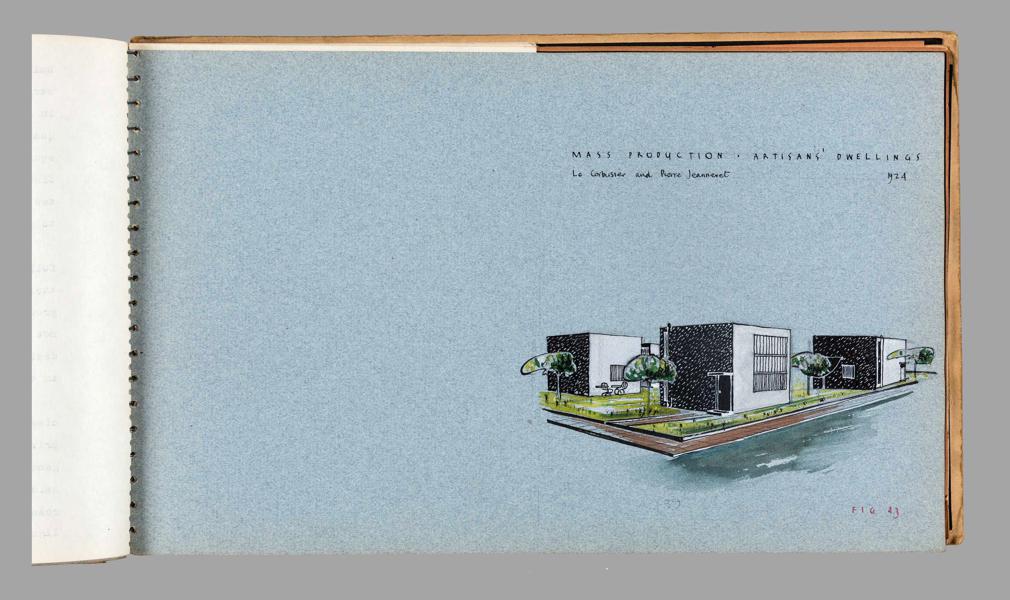 MASS PRODUCTION · ARTISANS' DWELLINGS
Le Corbusier and Pierre Jeanneret 1924
FIG 23